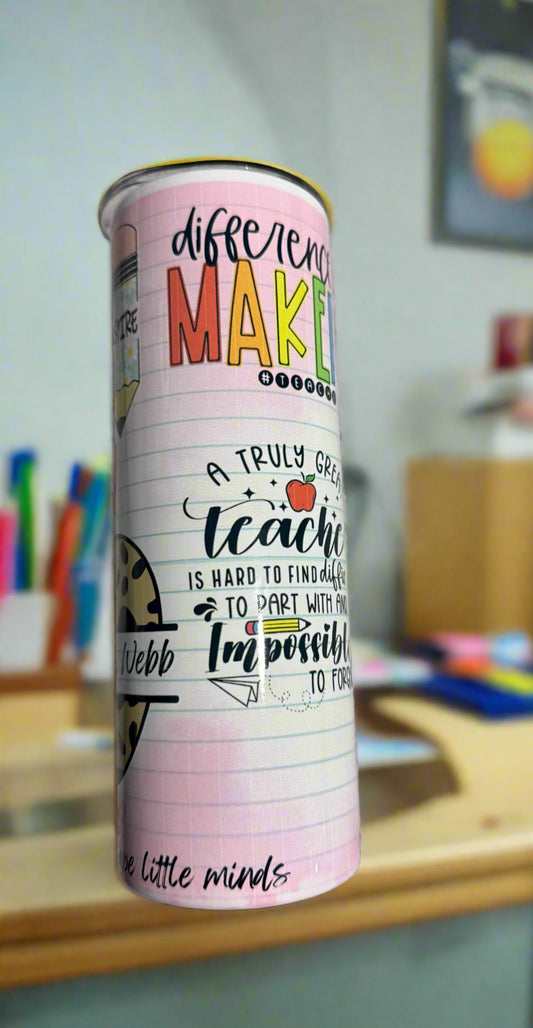 difference
MAKE
#TEACH
A TRULY GREA
teache
IS HARD TO FIND diffi
TO PART WITH AN
Impossible
TO FORG
Webb
little minds